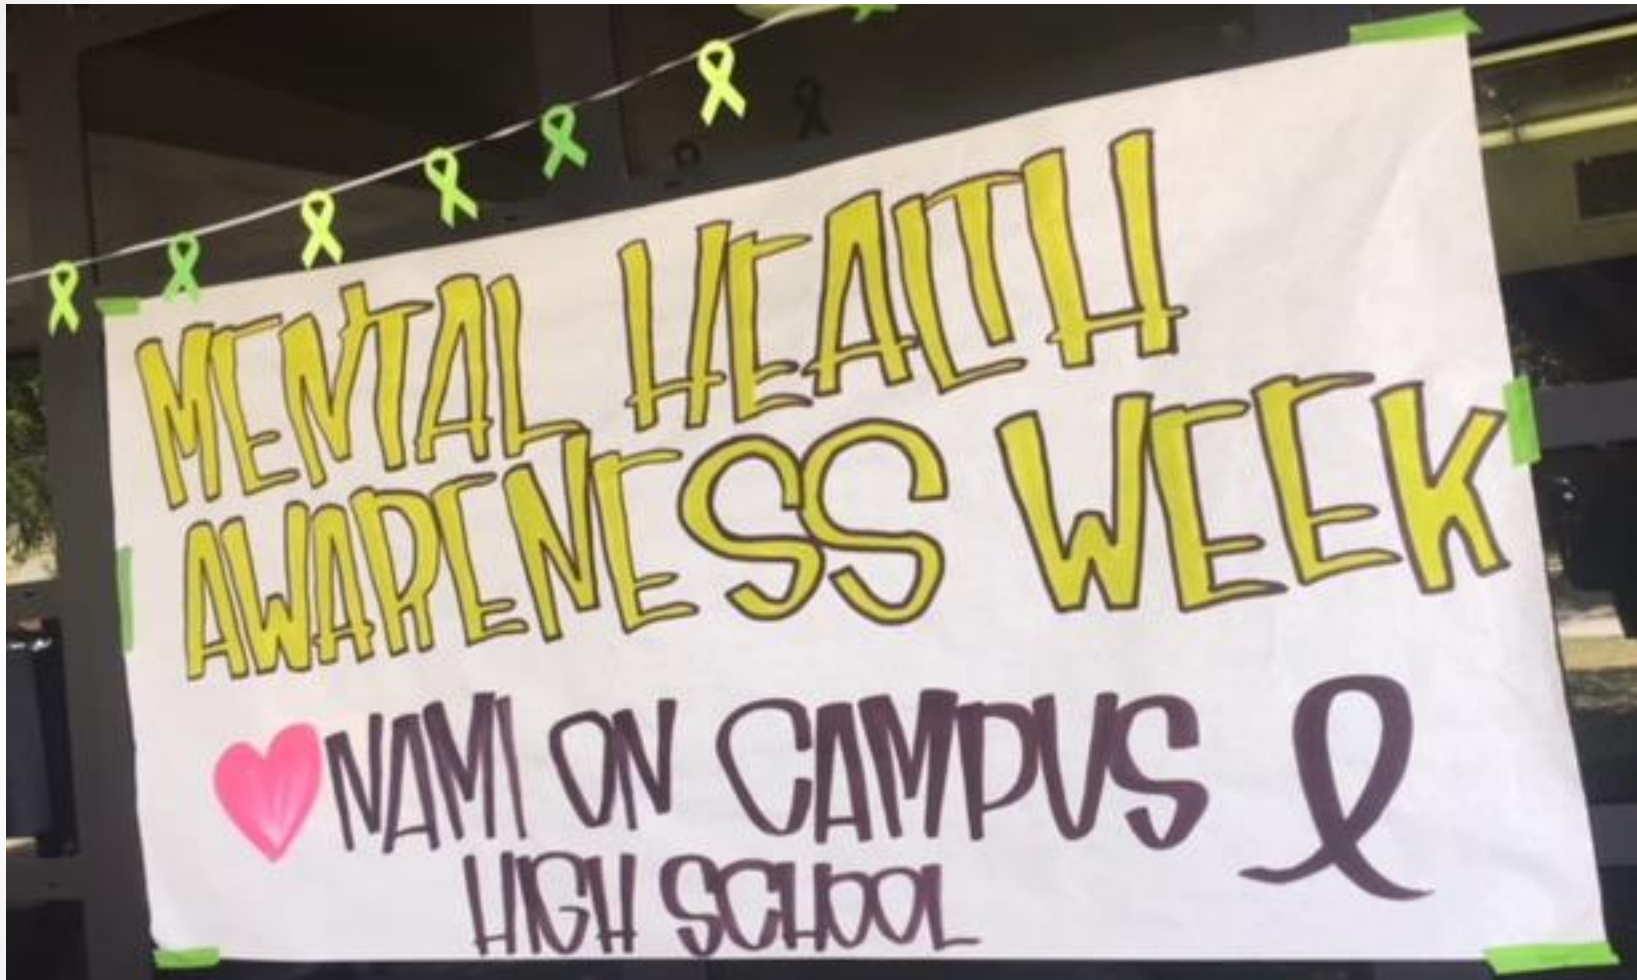 MENTAL HEALTH
AWARENESS WEEK
NAMI ON CAMPUS
HIGH SCHOOL